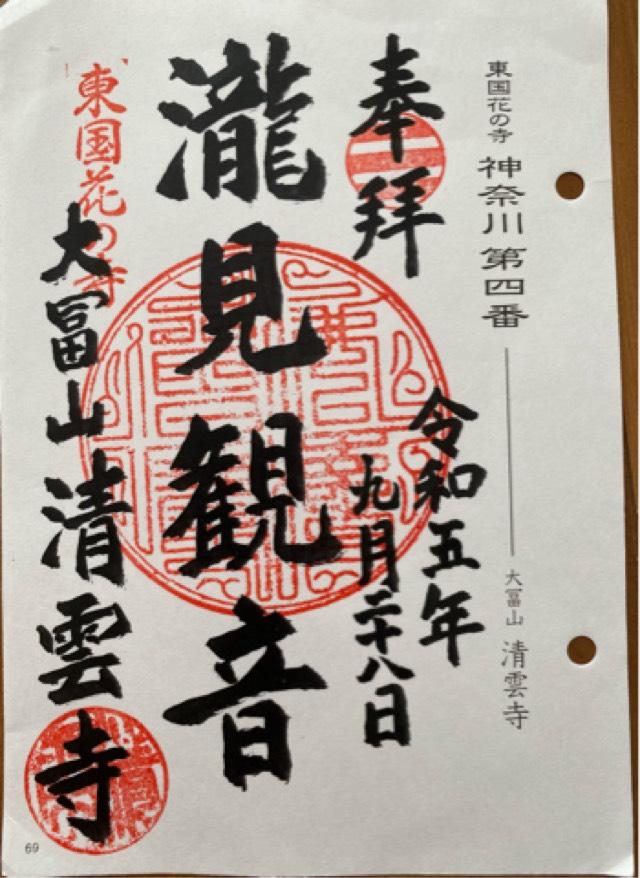 東国花の寺 神奈川第四番 大冨山 清雲寺
奉拝
令和五年
九月二十八日
瀧見観音
東国花の寺
大冨山清雲寺
69